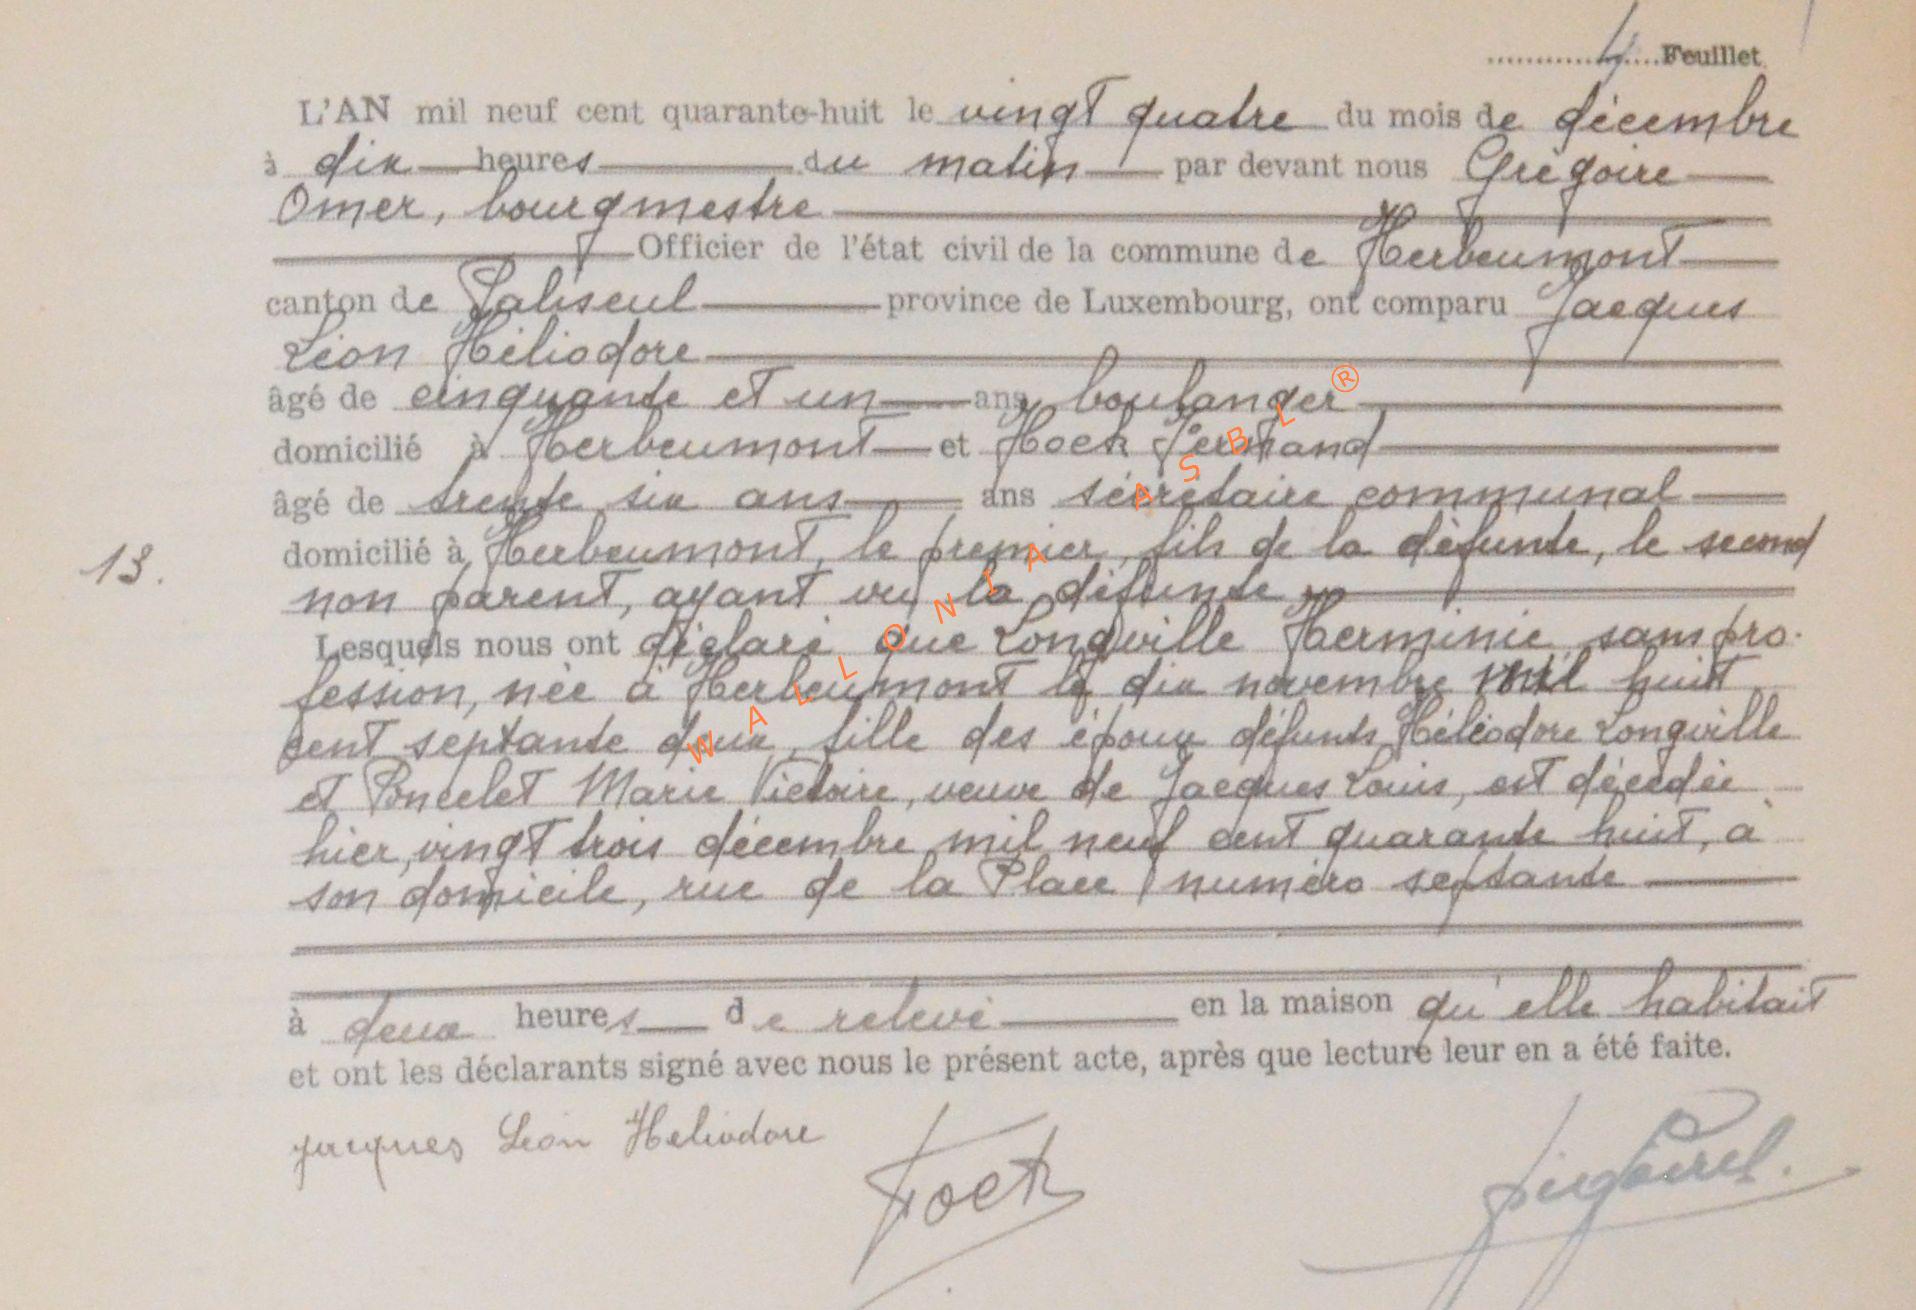 4 Feuillet
L'AN mil neuf cent quarante-huit le vingt quatre du mois de décembre
à dix heures du matin par devant nous Grégoire
Omer, bourgmestre
Officier de l'état civil de la commune de Herbeumont
canton de Paliseul province de Luxembourg, ont comparu Jacques
Léon Héliodore
âgé de cinquante et un ans boulanger
domicilié à Herbeumont et Hock Fernand
âgé de trente six ans ans secrétaire communal
domicilié à Herbeumont, le premier, fils de la défunte, le second
13.
non parent, ayant vu la défunte
Lesquels nous ont déclaré que Longville Herminie, sans pro-
fession, née à Herbeumont le dix novembre mil huit
cent septante deux, fille des époux défunts Héliodore Longville
et Poncelet Marie Victoire, veuve de Jacques Louis, est décédée
hier, vingt trois décembre mil neuf cent quarante huit, à
son domicile, rue de la Place, numéro septante
à deux heures de relevé en la maison qu'elle habitait
et ont les déclarants signé avec nous le présent acte, après que lecture leur en a été faite.
Jacques Léon Heliodore
Hock
WALLONIA ASBL ®